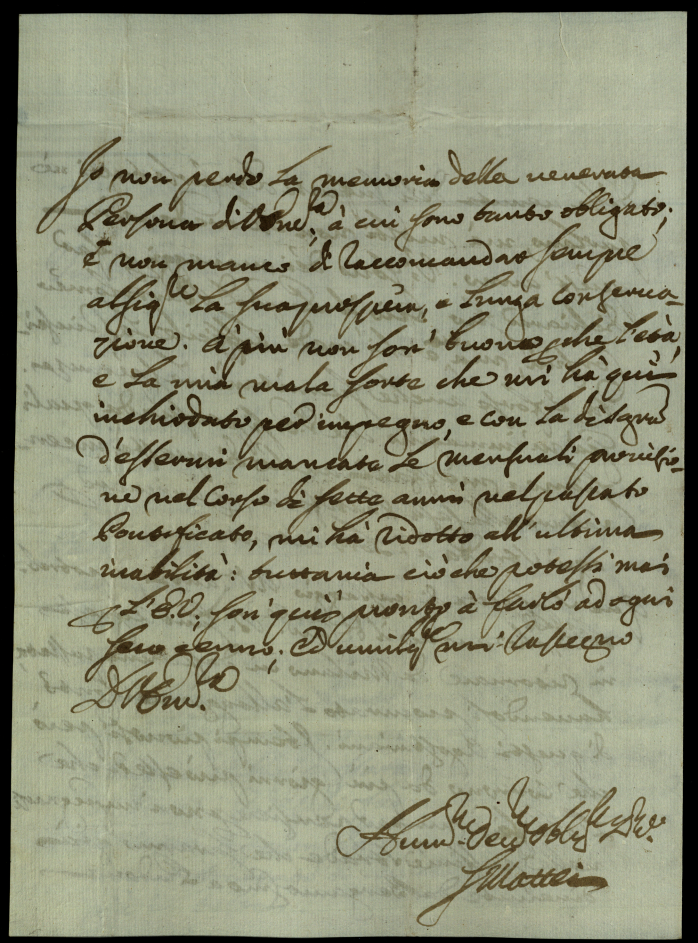 Io non perdo la memoria della venerata
Persona di V. Em.za, à cui sono tanto obligato;
E non manco di raccomandar sempre
al Sig.re la sua prosp.tà, e lunga conserva-
zione. A più non son' buono, che l'età,
e la mia mala sorte che mi hà qui
inchiodato per impegno, e con la disgra.
d'essermi mancata le mensuali provisio-
ne nel corso di sette anni nel passato
Pontificato, mi hà ridotto all'ultima
inabilità: tuttavia ciò che potessi mai
p. l'E.V., son' qui pronto à farlo ad ogni
suo cenno; Ed umilm.e mi rassegno
D. V. Em.za
Hum.mo Dev.mo Obblig.mo
Mattei